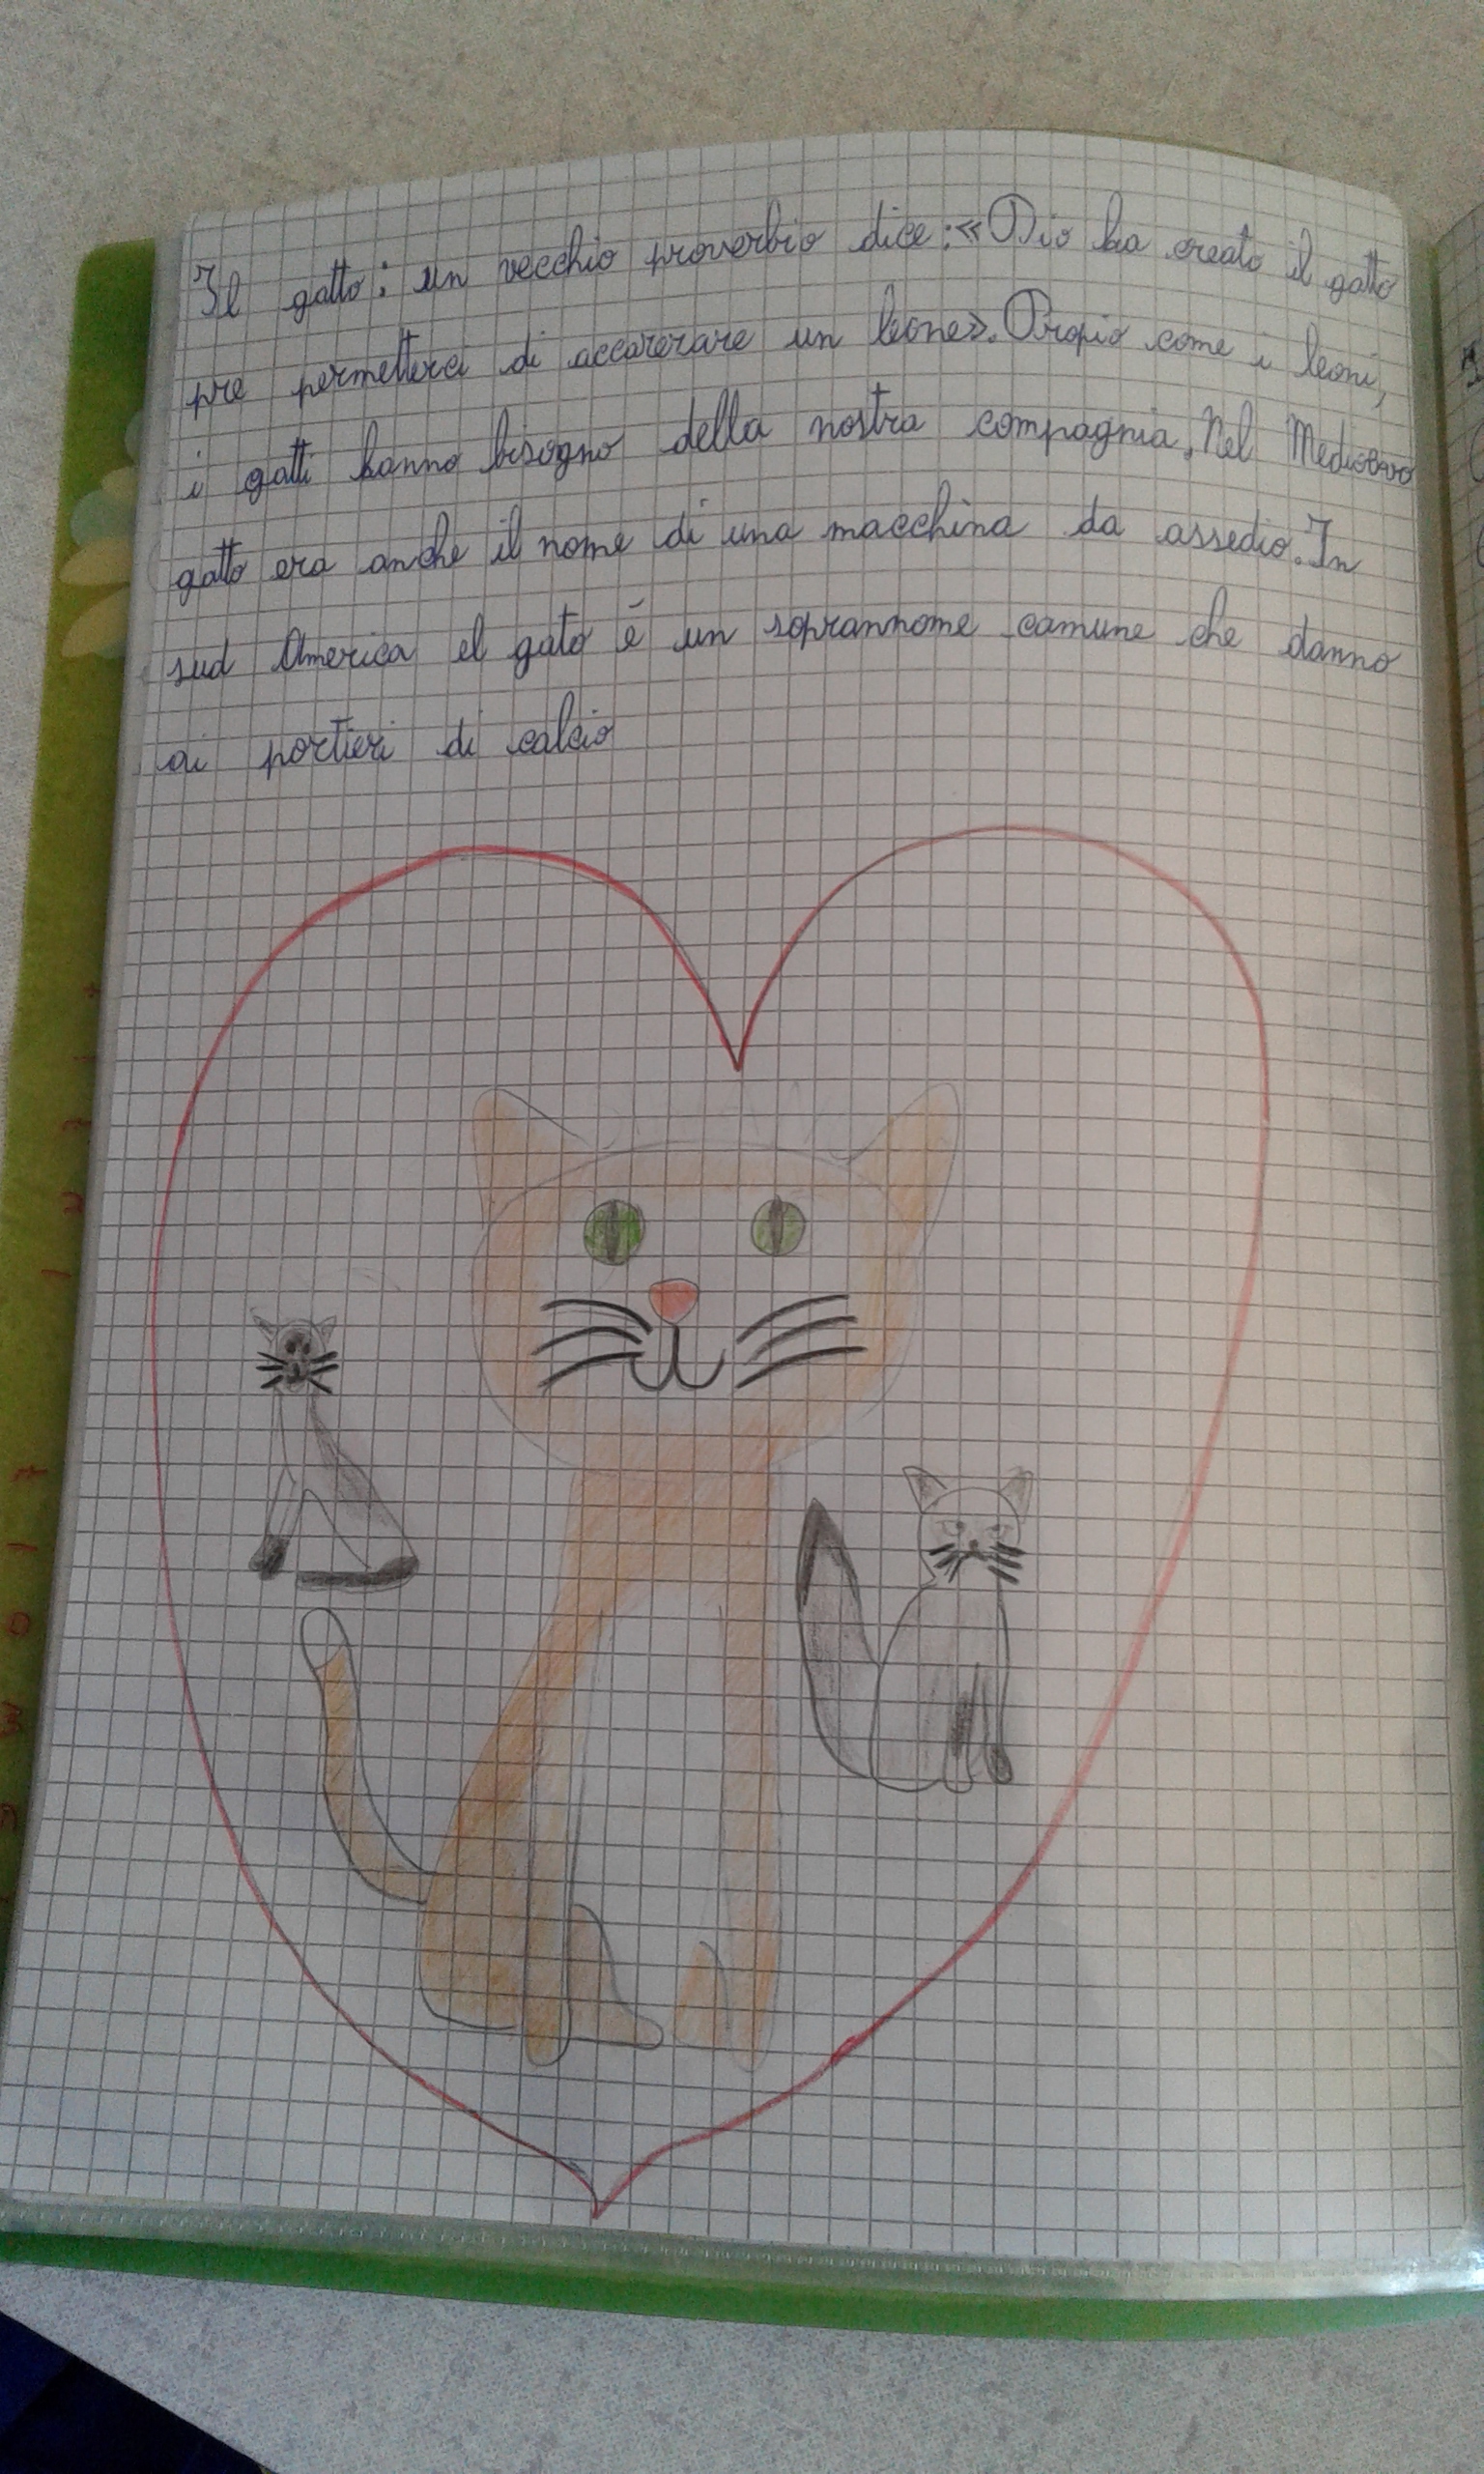 Il gatto: un vecchio proverbio dice: «Dio ha creato il gatto
pre permetterci di accarerare un leone». Propio come i leoni,
i gatti hanno bisogno della nostra compagnia. Nel Medioevo
gatto era anche il nome di una macchina da assedio. In
sud America el gato è un soprannome comune che danno
ai portieri di calcio